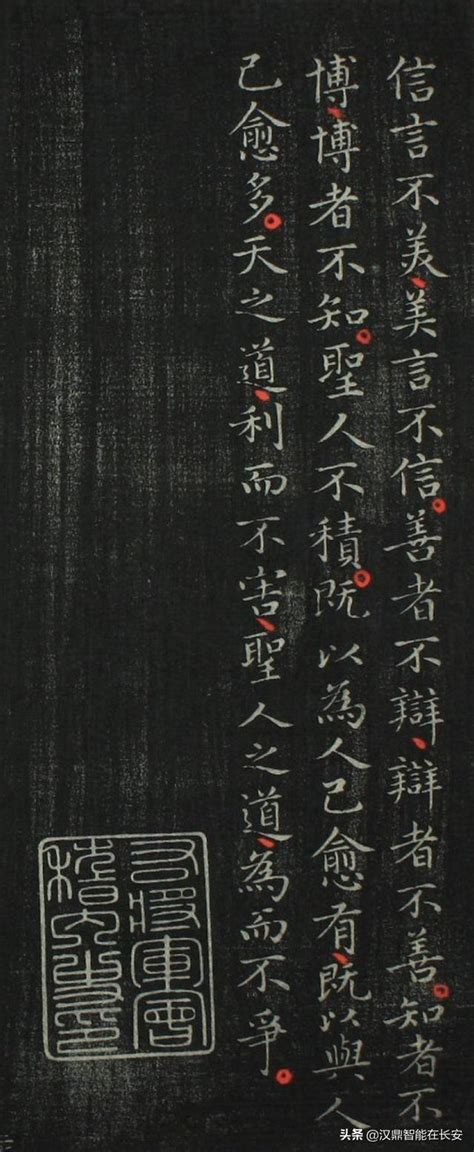 信言不美、美言不信。善者不辯、辯者不善。知者不
博、博者不知。聖人不積。既以為人己愈有、既以與人
己愈多。天之道、利而不害、聖人之道、為而不爭。
右將軍會
稽內史印
头条 @汉鼎智能在长安